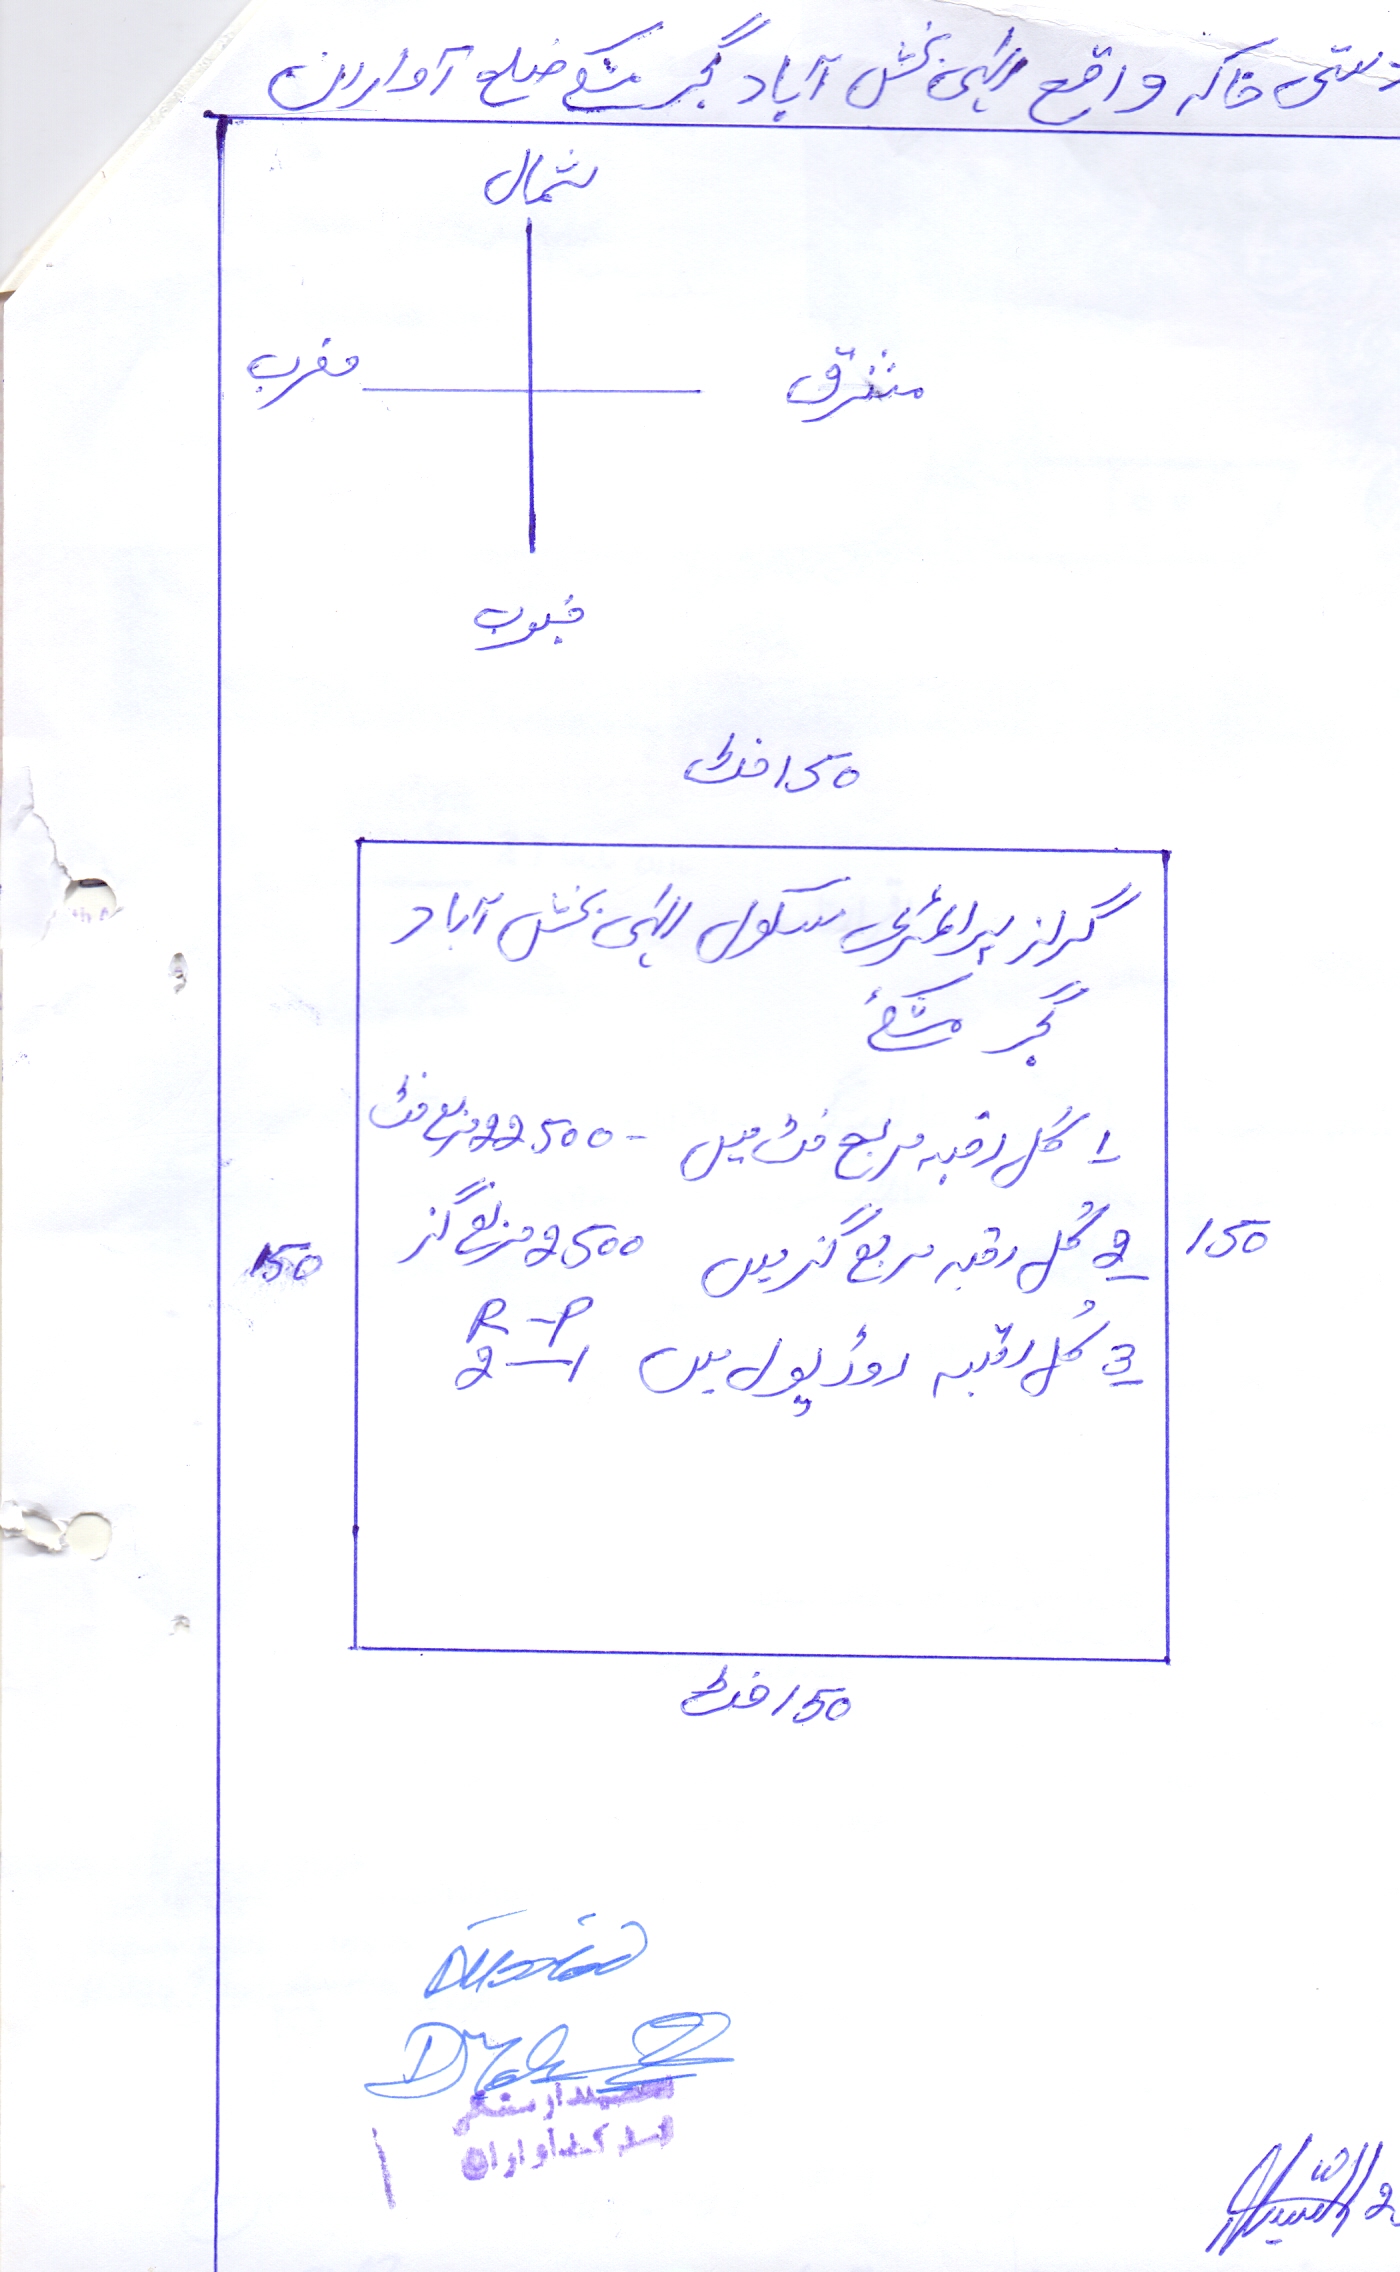 دستی خاکہ واقع الہی بخش آباد گجر مشکے ضلع آواران
شمال
مغرب
مشرق
جنوب
150 فٹ
گرلز پرائمری سکول الہی بخش آباد
گجر مشکئے
1 کل رقبہ مربع فٹ میں - 22500 مربع فٹ
2 کُل رقبہ مربع گز میں 2500 مربع گز
150
150
R - P
3 کُل رقبہ روڈ پول میں 2 - 1
150 فٹ
Attested
تحصیلدار مشکے
ڈسٹرکٹ آواران